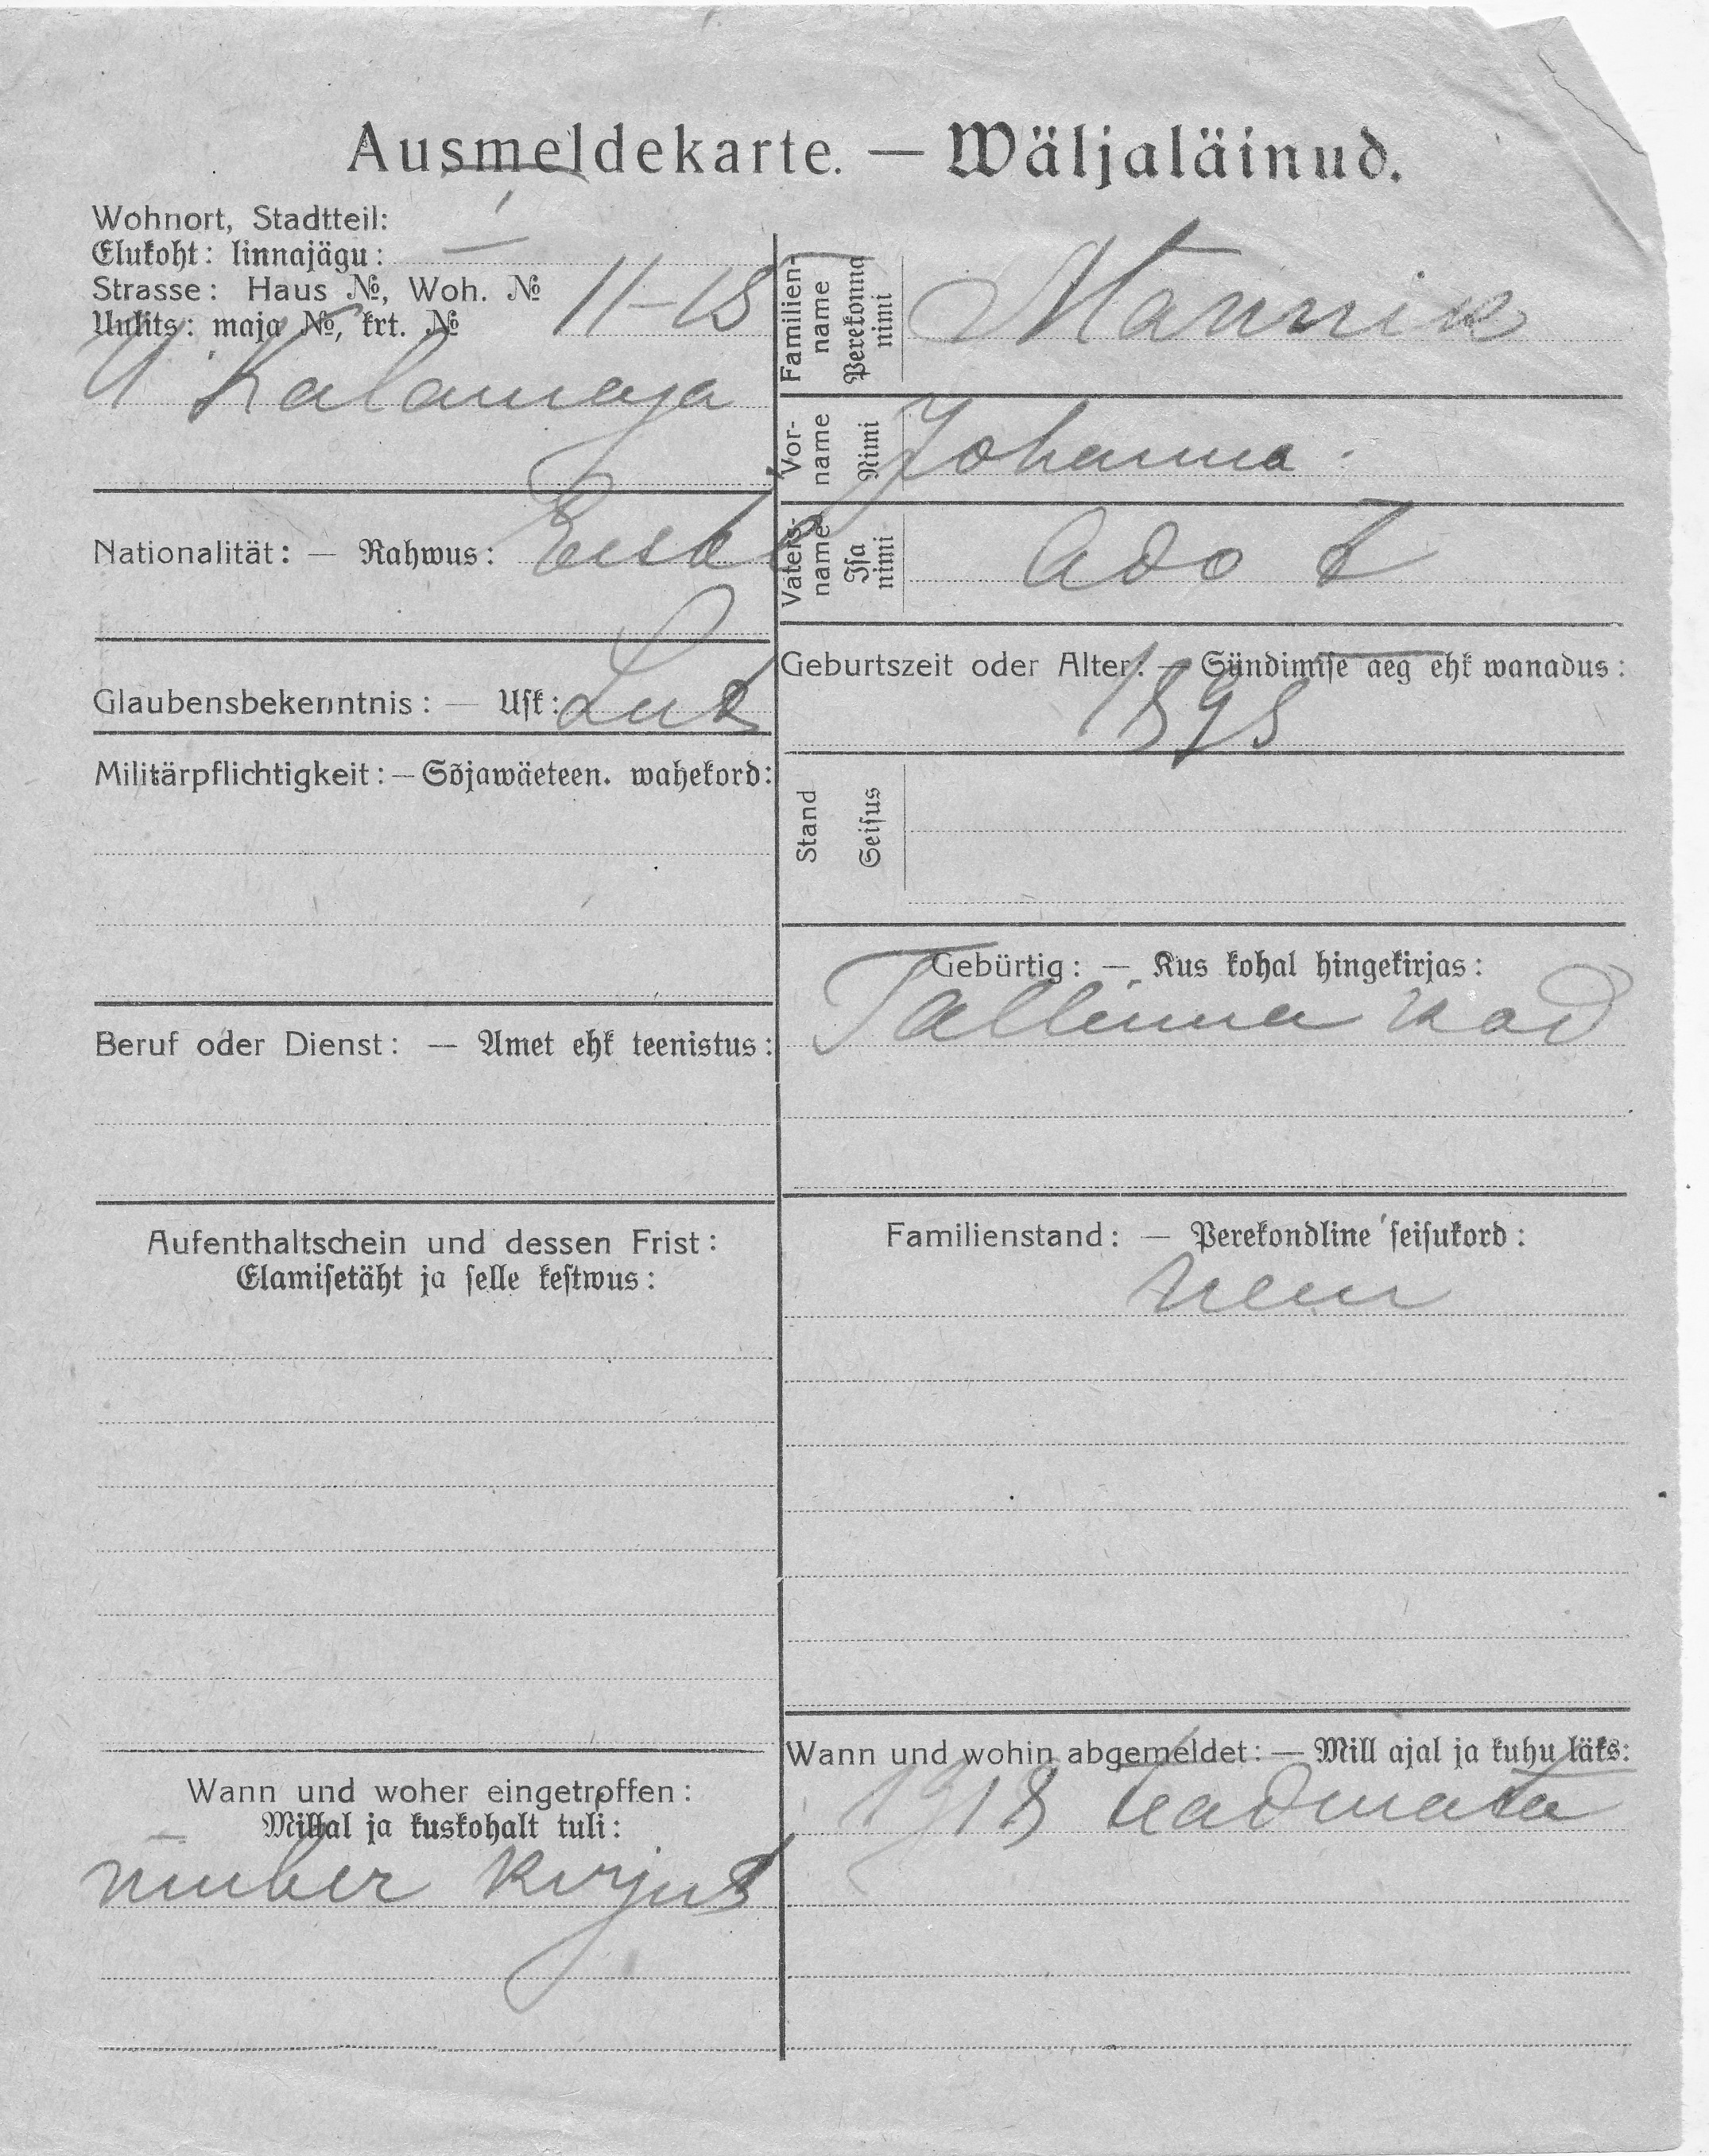 Ausmeldekarte. — Wäljaläinud.
Wohnort, Stadtteil:
Elukoht: linnajägu:
Strasse: Haus №, Woh. №
Uulits: maja №, krt. № 11-18
Kalamaja
Nationalität: — Rahwus: Eesti
Glaubensbekenntnis: — Usk: Lut
Militärpflichtigkeit: — Sõjawäeteen. wahekord:
Beruf oder Dienst: — Amet ehk teenistus:
Aufenthaltschein und dessen Frist:
Elamisetäht ja selle kestwus:
Wann und woher eingetroffen:
Millal ja kuskohalt tuli:
ümber kirjut
Familien-name Perekonna nimi Männik
Vor-name Nimi Johanna
Vaters-name Isa nimi Ado t
Geburtszeit oder Alter: — Sündimise aeg ehk wanadus:
1898
Stand Seisus
Gebürtig: — Kus kohal hingekirjas:
Tallinna kod
Familienstand: — Perekondline seisukord:
Wann und wohin abgemeldet: — Mill ajal ja kuhu läks:
1918 teadmata